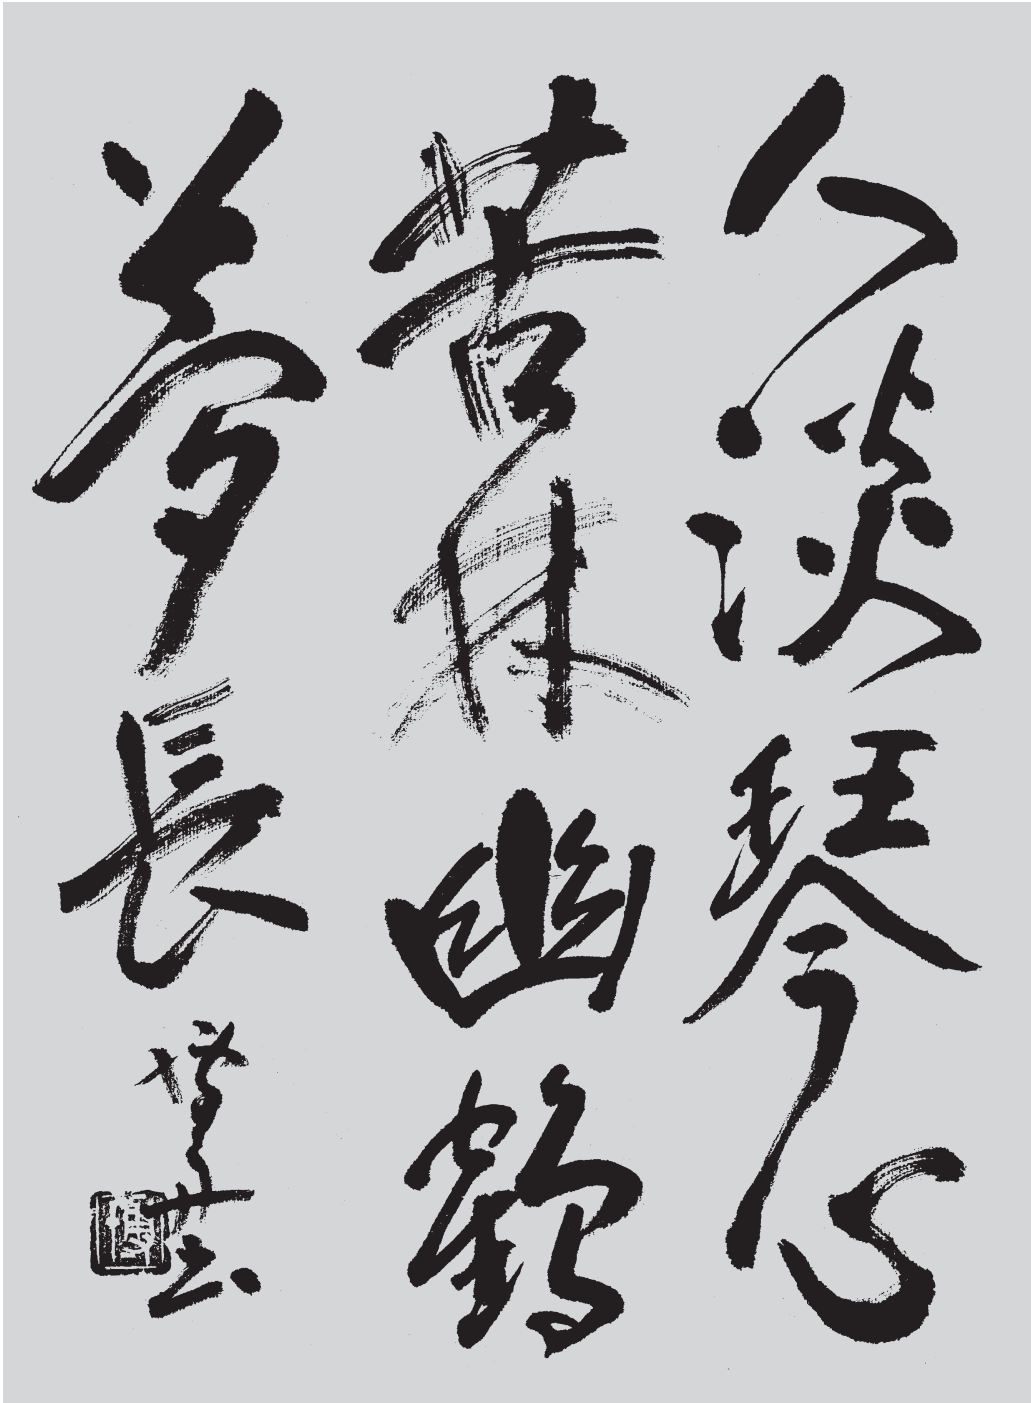 人淡琴心
苦林幽鶴
夢長